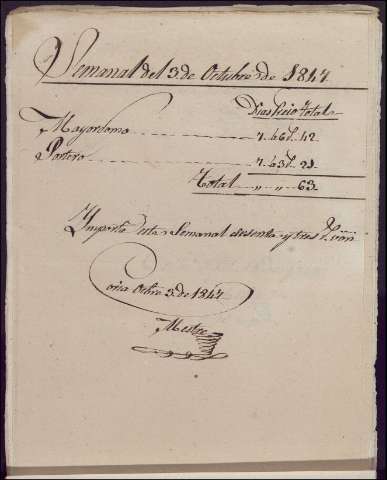 Semanal del 3 de Octubre de 1847
Dias Precio Total
Mayordomo 7. á 6 r. 42
Portero 7. á 3 r. 21
Total „ „ 63
Importa esta Semanal sesenta y tres r. von
Coria Octbre 3 de 1847
Mestre